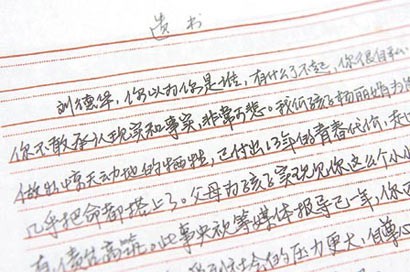 遗书
刘德华,你以为你是谁,有什么了不起,你很自私
你不敢承认现实和事实,非常可悲。我低孩子杨丽娟为
做的惊天动地的牺牲,已付出13年的青春代价,
几乎把命都搭上了。父母为孩子实现见你这么个小小
债台高筑。此事央视等媒体报导已一年,你
社会的压力更大,自尊心